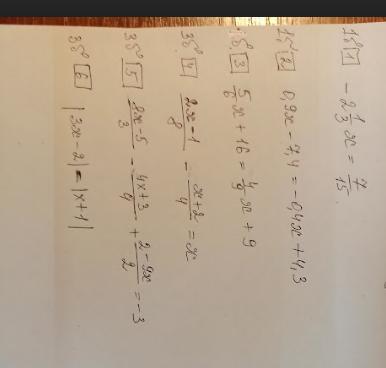 1б [1] -2 1/3 x = 7/15
1б [2] 0,9x - 7,4 = -0,4x + 4,3
1б [3] 5/6 x + 16 = 4/9 x + 9
3б [4] (2x-1)/8 - (x+2)/4 = x
3б [5] (2x-5)/3 - (4x+3)/4 + (2-9x)/2 = -3
3б [6] |3x-2| = |x+1|